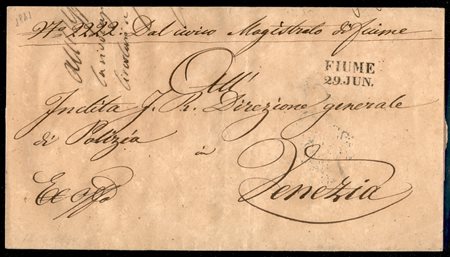 No 2222. Dal civico Magistrato di Fiume
FIUME
29.JUN.
All'
Inclita I. R. Direzione generale
di Polizia
in
Venezia
Ex offo